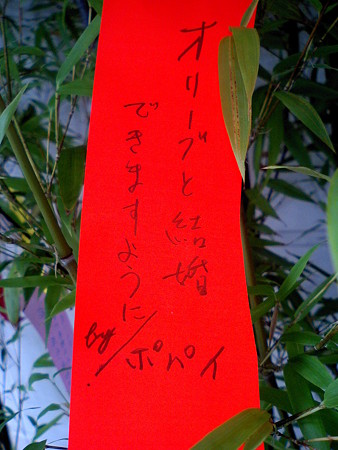 オリーブと結婚
できますように
by ポパイ